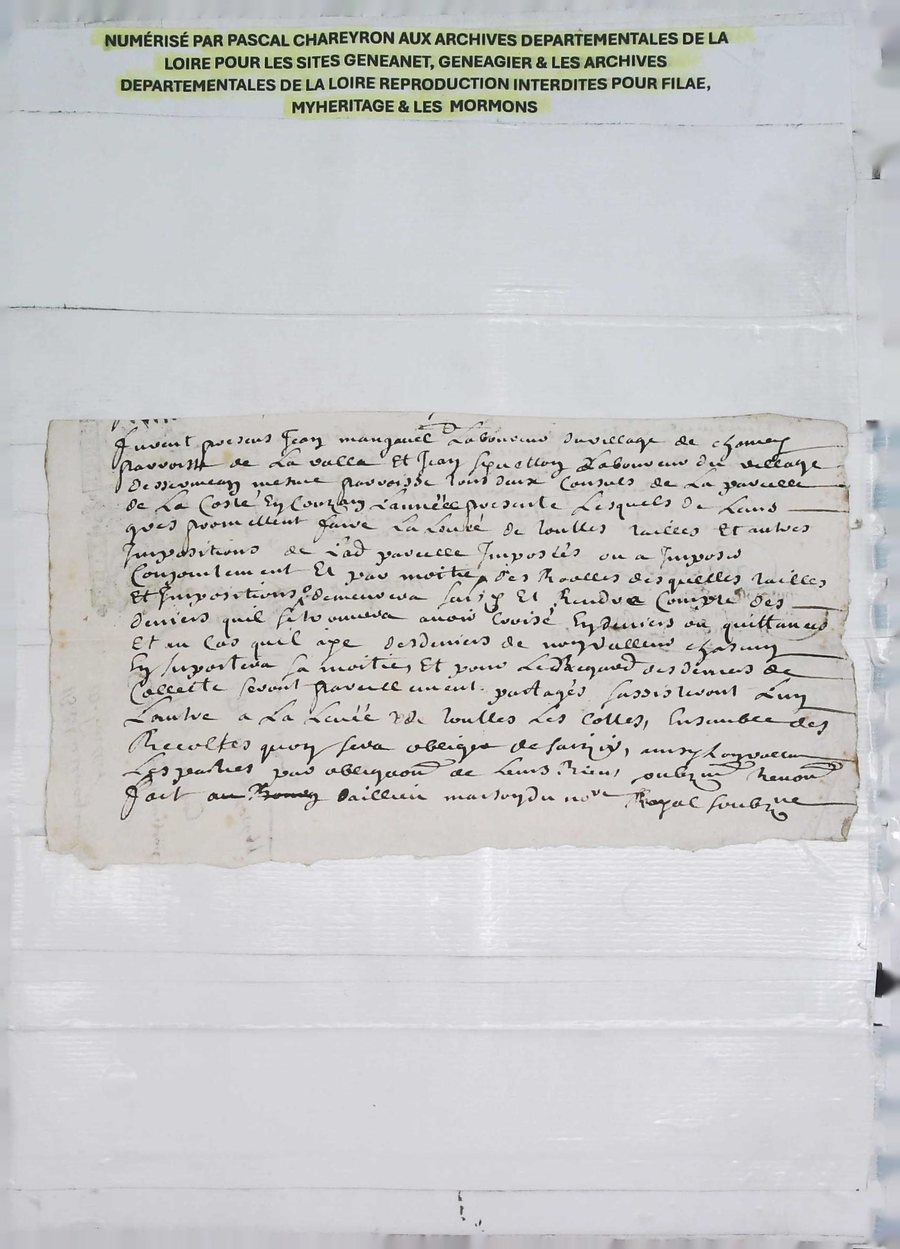 NUMÉRISÉ PAR PASCAL CHAREYRON AUX ARCHIVES DEPARTEMENTALES DE LA
LOIRE POUR LES SITES GENEANET, GENEAGIER & LES ARCHIVES
DEPARTEMENTALES DE LA LOIRE REPRODUCTION INTERDITES POUR FILAE,
MYHERITAGE & LES MORMONS
furent presens Jean Laboureur du village de
parroisse de La valla Et Jean Laboureur du village
mesme parroisse tous deux Consuls de La parcelle
de La Coste En Couzan Lannéé presente Lesquels de Leurs
gres promettent faire La Leuéé de touttes tailles Et autres
Jmpositions de Lad parcelle Jmposéés ou a Jmposer
Conjointement Et par moitie des Roolles desquelles tailles
Et Jmpositions demeurera saisy Et Rendra Compte des
deniers quil se trouuera auoir En deniers ou quittances
Et au Cas quil aye des deniers de chascun
En suportera sa moitie, Et pour Le Regard des deniers de
Collette seront pareillement partagés sassisteront Lun
Lautre a La Leuéé de touttes Les Cottes, Ensemble des
Recoltes quon sera obligé de saizir,
Les parties par obligaon de Leurs Biens
fait maison du nore Royal soubzne